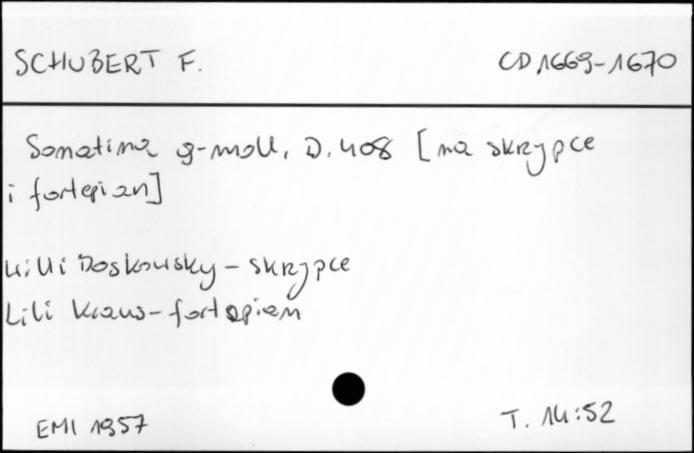 SCHUBERT F.
CD 1669-1670
Sonatina g-moll, D. 408 [na skrzypce
i fortepian]
Willi Boskowsky - skrzypce
Lili Kraus - fortepian
EMI 1957
T. 14:52